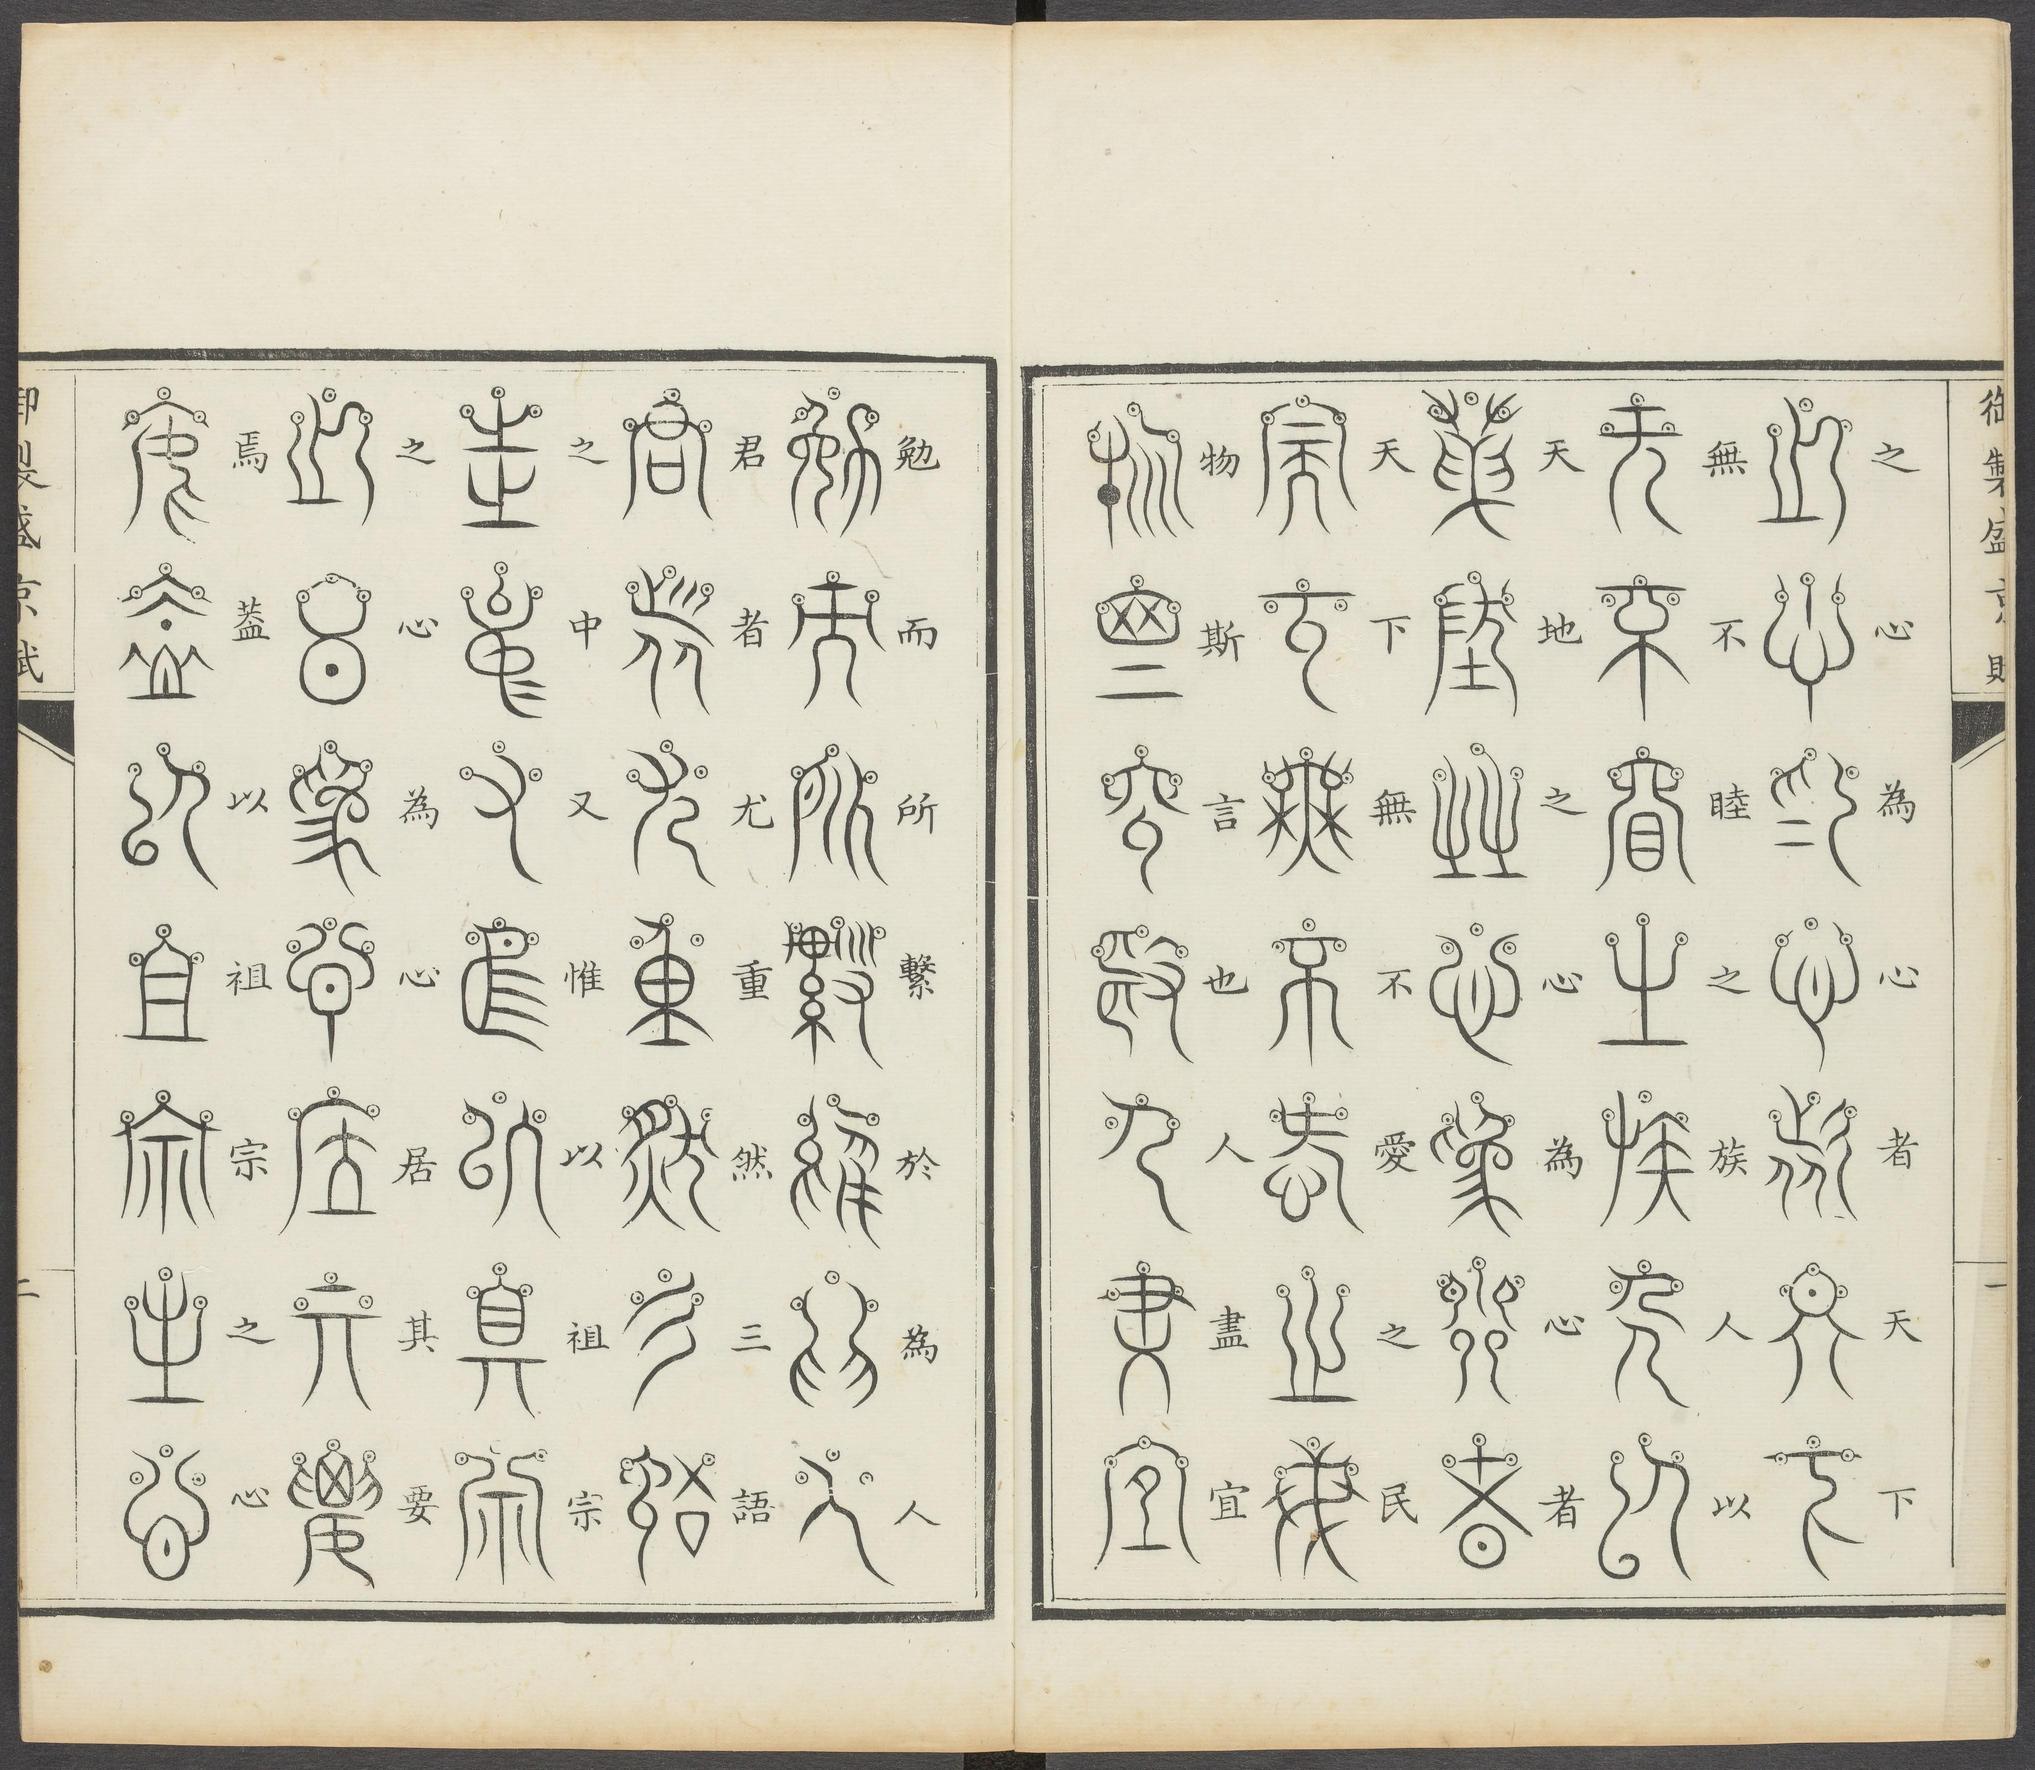 御製盛京賦
一
之心為心者天下
無不睦之族人以
天地之心為心者
天下無不愛之民
物斯言也人盡宜
勉而所繫於為人
君者尤重然三語
之中又惟以祖宗
之心為心居其要
焉蓋以祖宗之心
御製盛京賦
二